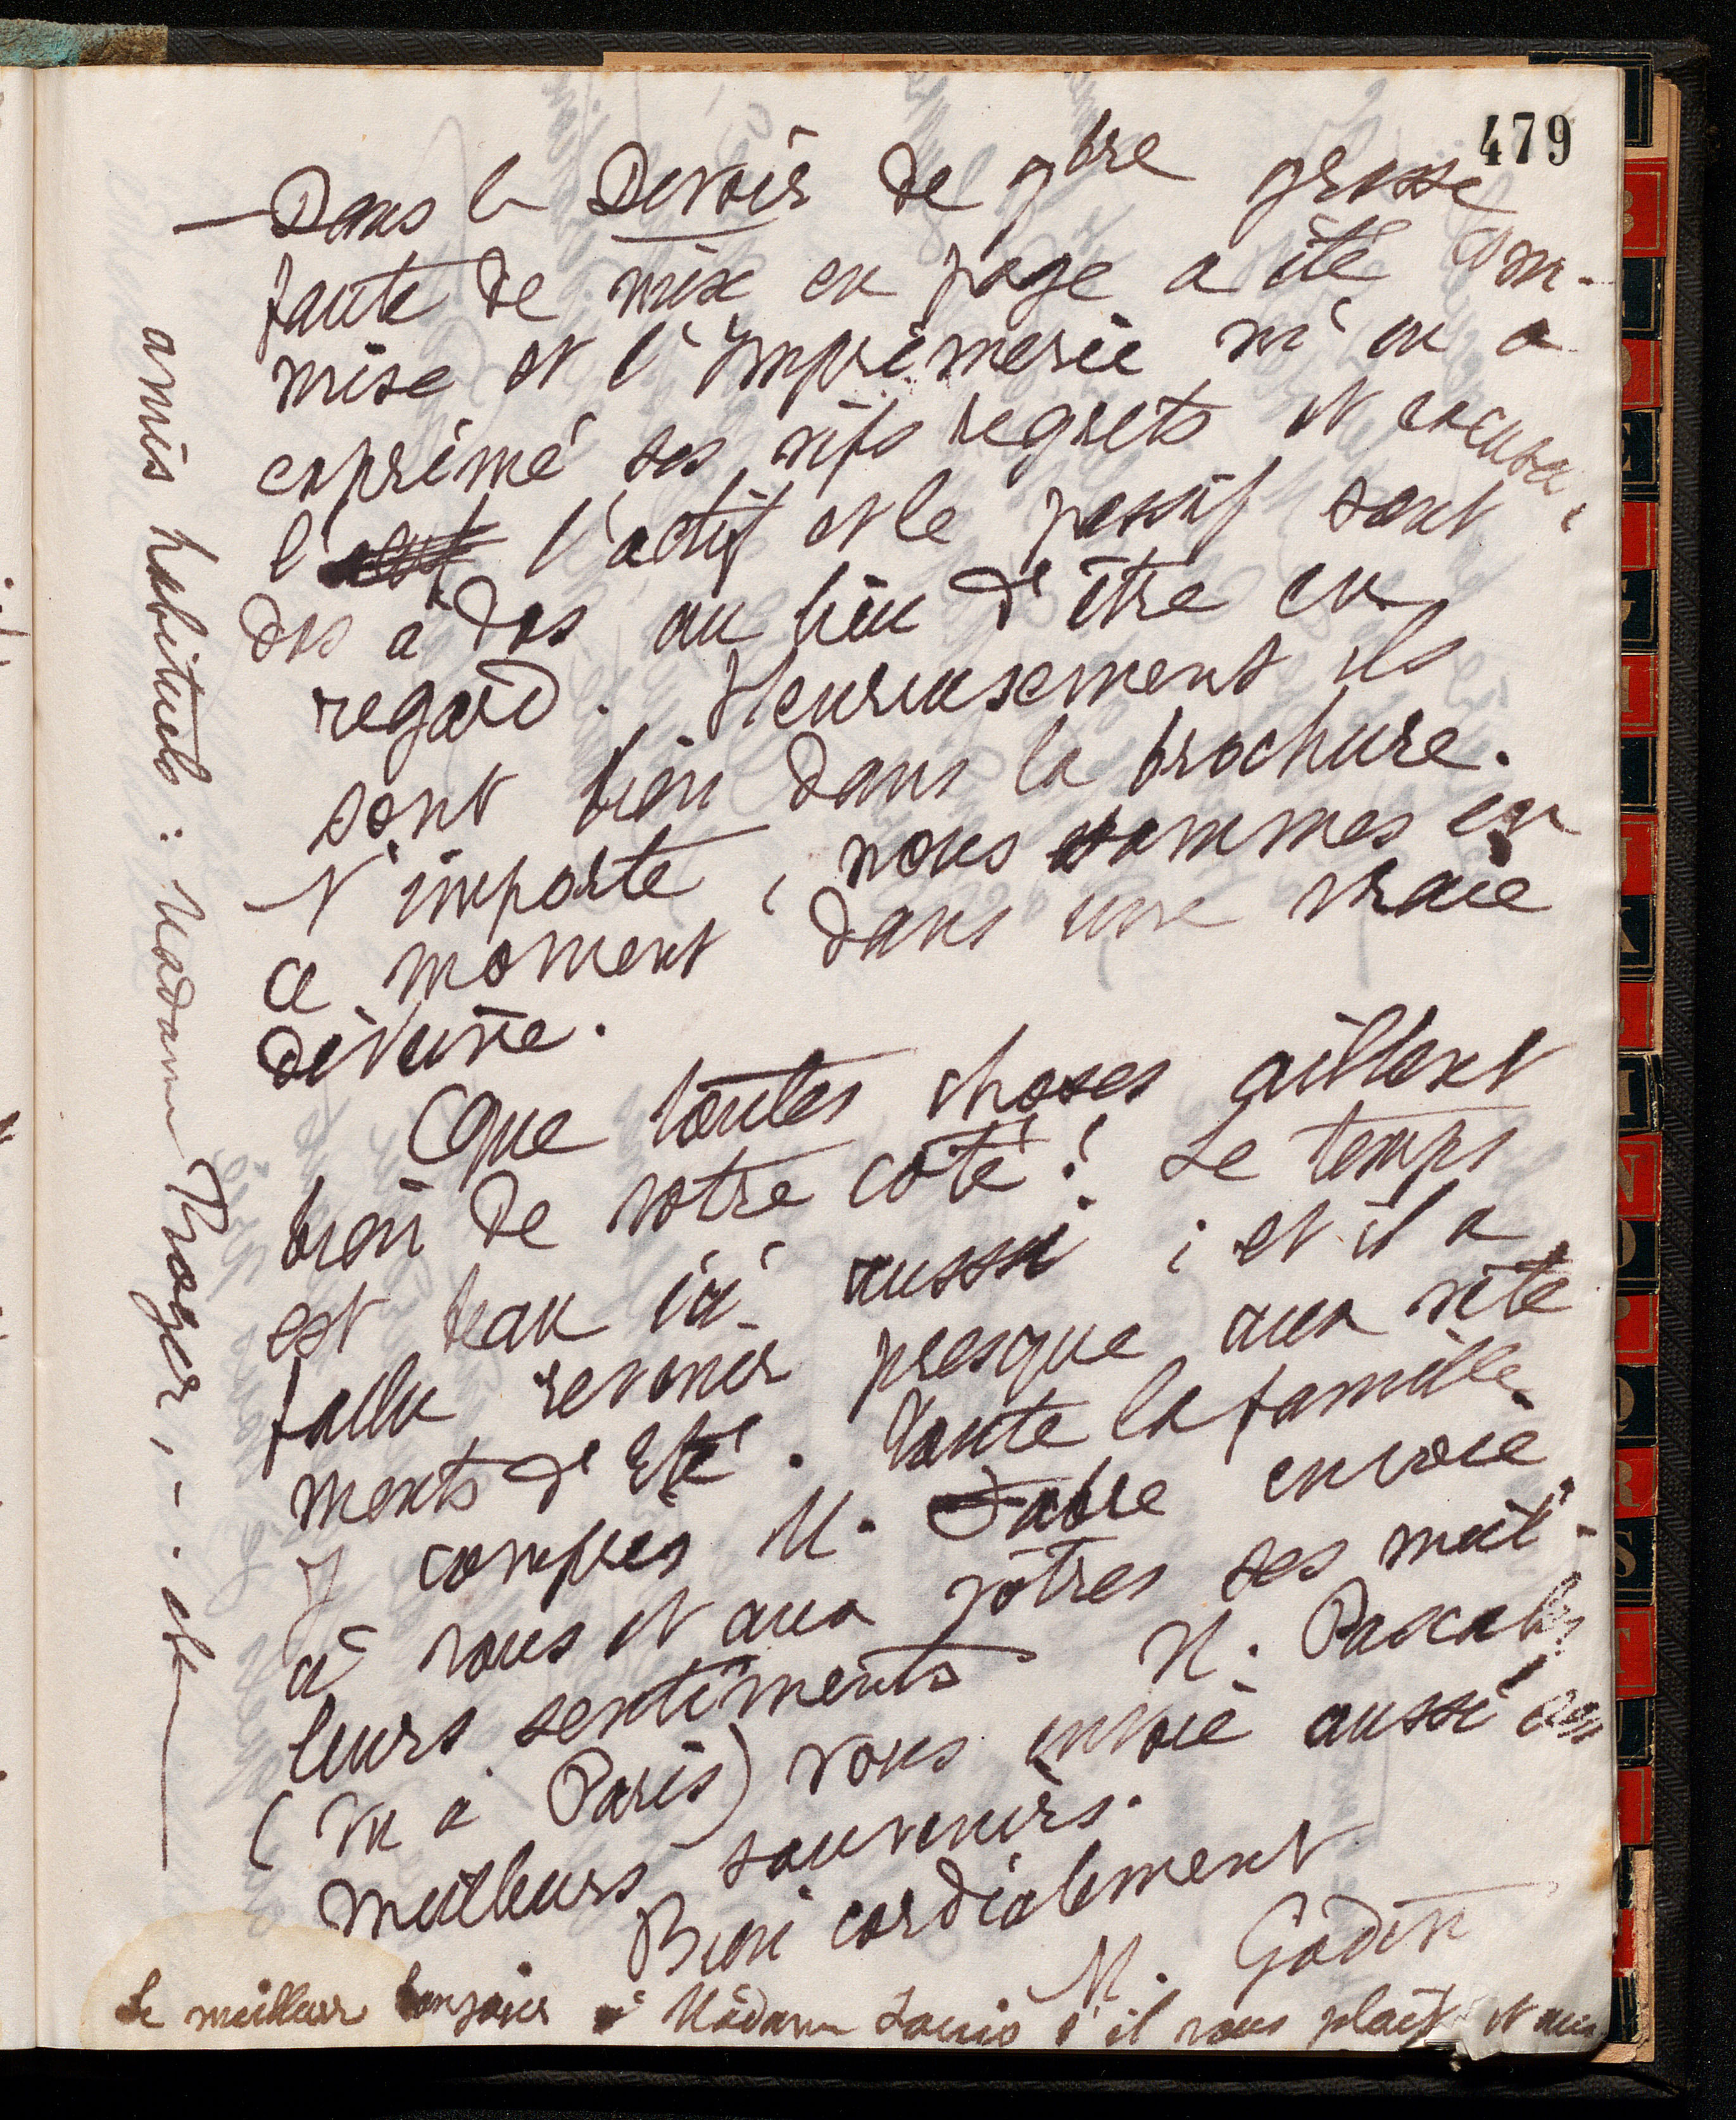 479
— Dans le Devoir de 9bre grosse
faute de mise en page a été com-
mise et l'Imprimerie m'en a
exprimé ses vifs regrets et excuses ;
l' l'actif et le passif sont
dos à dos au lieu d'être en
regard. Heureusement ils
sont bien dans la brochure.
N'importe, nous sommes en
ce moment dans une vraie
déveine.
Que toutes choses aillent
bien de votre côté ! Le temps
est beau ici aussi ; et il a
fallu revenir presque aux vête
ments d'Eté. Toute la famille
y compris M. Fabre envoie
à vous et aux vôtres ses meil-
leurs sentiments M. Pascaly
(vu à Paris) vous envoie aussi ses
meilleurs souvenirs.
Bien cordialement
M. Godin
Le meilleur bonjour à Madame Louis s'il vous plait et aux
amis habituels : Madame Roger, -. etc